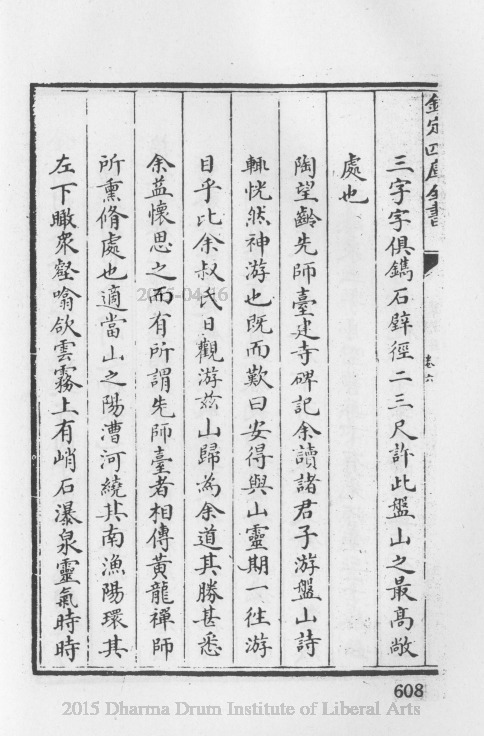 欽定四庫全書
卷六
三字字俱鐫石壁徑二三尺許此盤山之最高敞
處也
陶望齡先師臺建寺碑記余讀諸君子游盤山詩
輒恍然神游也既而歎曰安得與山靈期一往游
目乎比余叔氏日觀游茲山歸為余道其勝甚悉
余益懷思之而有所謂先師臺者相傳黃龍禪師
所熏脩處也適當山之陽漕河繞其南漁陽環其
左下瞰衆壑噏欲雲霧上有峭石瀑泉靈氣時時
608
2015 Dharma Drum Institute of Liberal Arts